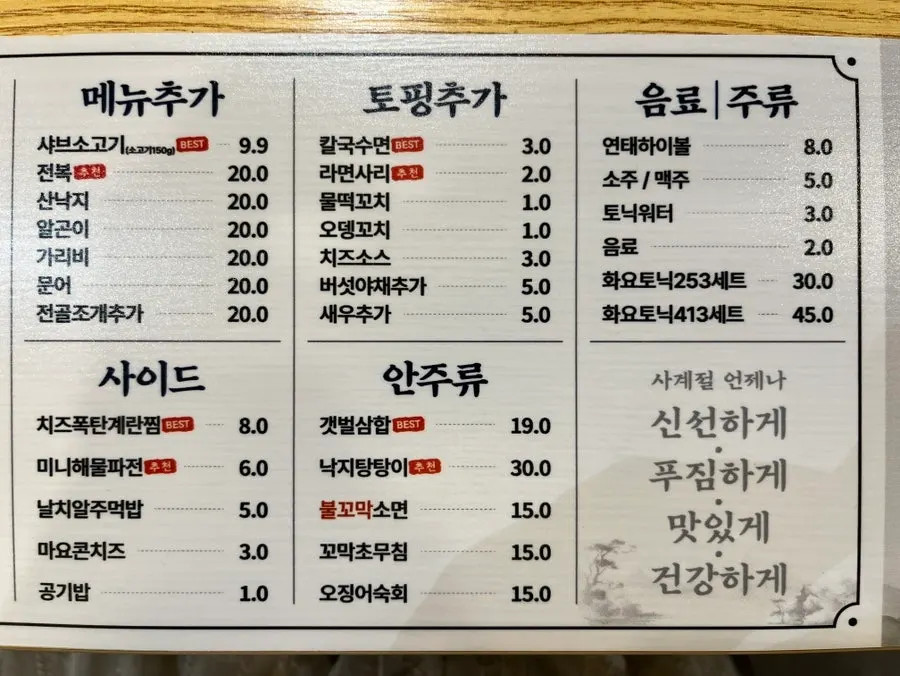 메뉴추가
샤브소고기(소고기150g) BEST 9.9
전복 추천 20.0
산낙지 20.0
알곤이 20.0
가리비 20.0
문어 20.0
전골조개추가 20.0
토핑추가
칼국수면 BEST 3.0
라면사리 추천 2.0
물떡꼬치 1.0
오뎅꼬치 1.0
치즈소스 3.0
버섯야채추가 5.0
새우추가 5.0
음료|주류
연태하이볼 8.0
소주 / 맥주 5.0
토닉워터 3.0
음료 2.0
화요토닉253세트 30.0
화요토닉413세트 45.0
사이드
치즈폭탄계란찜 BEST 8.0
미니해물파전 추천 6.0
날치알주먹밥 5.0
마요콘치즈 3.0
공기밥 1.0
안주류
갯벌삼합 BEST 19.0
낙지탕탕이 추천 30.0
불꼬막소면 15.0
꼬막초무침 15.0
오징어숙회 15.0
사계절 언제나
신선하게
푸짐하게
맛있게
건강하게